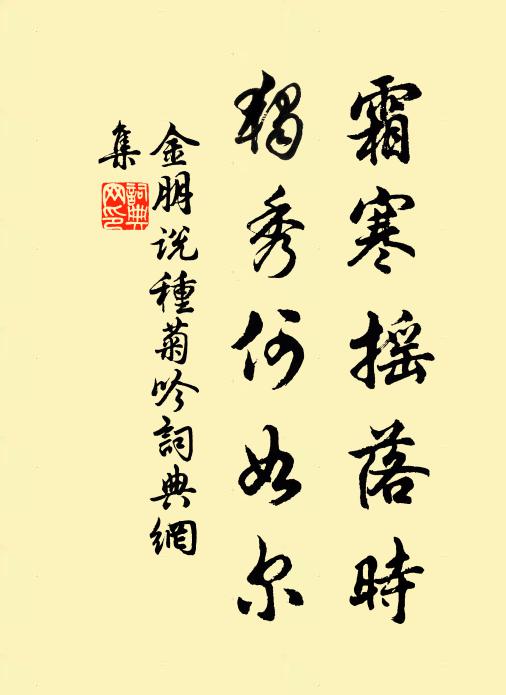 霜寒摇落時
獨秀何如尔
金朋说種菊吟詞典網
集
詞典
网印